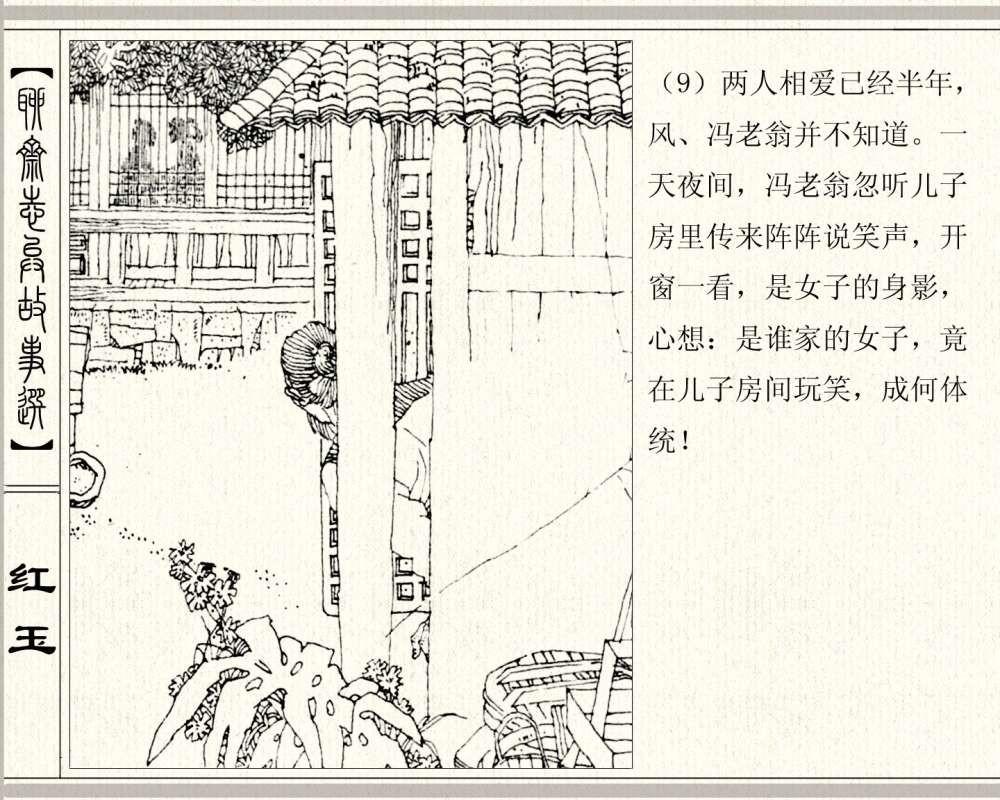 【聊斋志异故事选】
红玉
（9）两人相爱已经半年，
风、冯老翁并不知道。一
天夜间，冯老翁忽听儿子
房里传来阵阵说笑声，开
窗一看，是女子的身影，
心想：是谁家的女子，竟
在儿子房间玩笑，成何体
统！